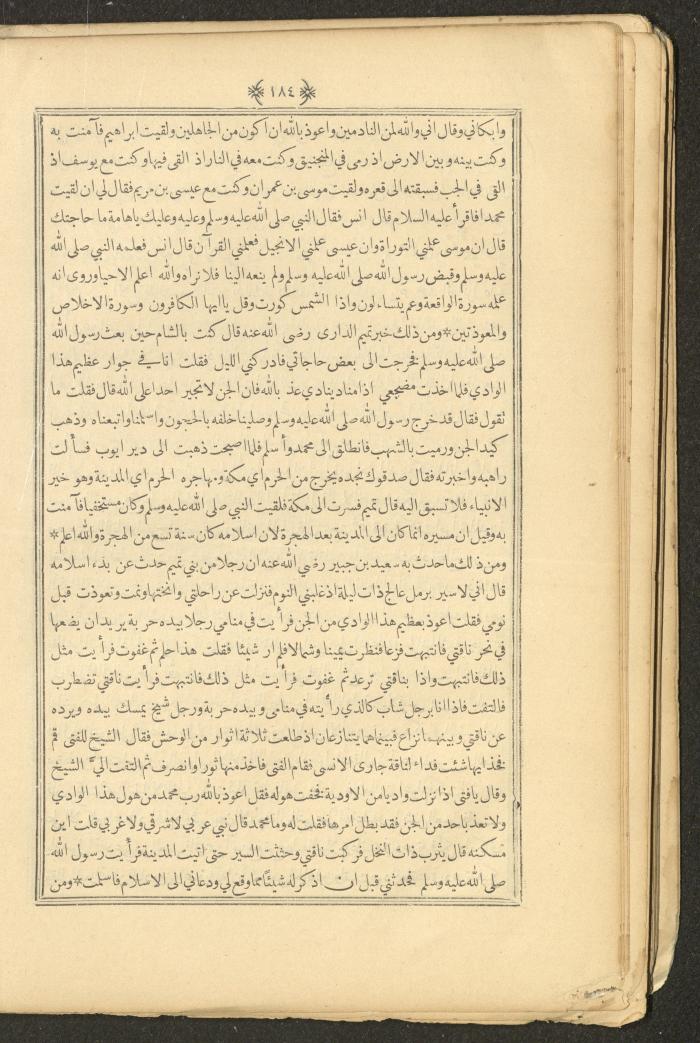 ١٨٤
وابكاني وقال اني والله لمن النادمين واعوذ بالله ان أكون من الجاهلين ولقيت ابراهيم فآمنت به
وكنت بينه وبين الارض اذ رمى في المنجنيق وكنت معه في النار اذ القى فيها وكنت مع يوسف اذ
القى في الجب فسبقته الى قعره ولقيت موسى بن عمران وكنت مع عيسى بن مريم فقال لي ان لقيت
محمدا فاقرأ عليه السلام قال انس فقال النبي صلى الله عليه وسلم وعليه وعليك ياهامة ما حاجتك
قال ان موسى علمني التوراة وان عيسى علمني الانجيل فعلمني القرآن قال انس فعلمه النبي صلى الله
عليه وسلم وقبض رسول الله صلى الله عليه وسلم ولم ينعه الينا فلا نراه والله اعلم الاحيا وروى انه
علمه سورة الواقعة وعم يتساءلون واذا الشمس كورت وقل ياايها الكافرون وسورة الاخلاص
والمعوذتين * ومن ذلك خبر تميم الدارى رضى الله عنه قال كنت بالشام حين بعث رسول الله
صلى الله عليه وسلم فخرجت الى بعض حاجاتي فادركني الليل فقلت انا في جوار عظيم هذا
الوادي فلما اخذت مضجعي اذا مناد ينادي عذ بالله فان الجن لا تجير احدا على الله قال فقلت ما
تقول فقال قد خرج رسول الله صلى الله عليه وسلم وصلينا خلفه بالحيجون واسلمنا واتبعناه وذهب
كيد الجن ورميت بالشهب فانطلق الى محمد وأسلم فلما اصبحت ذهبت الى دير ايوب فسألت
راهبه واخبرته فقال صدقوك نجده يخرج من الحرم اي مكة ومهاجره الحرم اي المدينة وهو خير
الانبياء فلا تسبق اليه قال تميم فسرت الى مكة فلقيت النبي صلى الله عليه وسلم وكان مستخفيا فآمنت
به وقيل ان مسيره انما كان الى المدينة بعد الهجرة لان اسلامه كان سنة تسع من الهجرة والله اعلم *
ومن ذلك ما حدث به سعيد بن جبير رضي الله عنه ان رجلا من بني تميم حدث عن بدء اسلامه
قال اني لاسير برمل عالج ذات ليلة اذ غلبني النوم فنزلت عن راحلتي وانختها ونمت وتعوذت قبل
نومي فقلت اعوذ بعظيم هذا الوادي من الجن فرأيت في منامي رجلا بيده حربة يريد ان يضعها
في نحر ناقتي فانتبهت فزعا فنظرت يمينا وشمالا فلم ار شيئا فقلت هذا حلم ثم غفوت فرأيت مثل
ذلك فانتبهت واذا بناقتي ترعد ثم غفوت فرأيت مثل ذلك فانتبهت فرأيت ناقتي تضطرب
فالتفت فاذا انا برجل شاب كالذي رأيته في منامى وبيده حربة ورجل شيخ يمسك بيده ويرده
عن ناقتي وبينهما نزاع فبينما هما يتنازعان اذ طلعت ثلاثة اثوار من الوحش فقال الشيخ للفتى قم
فخذ ايها شئت فداء لناقة جارى الانسى فقام الفتى فاخذ منها ثورا وانصرف ثم التفت اليّ الشيخ
وقال يافتى اذا نزلت واديا من الاودية فخفت هوله فقل اعوذ بالله رب محمد من هول هذا الوادي
ولا تعذ باحد من الجن فقد بطل امرها فقلت له وما محمد قال نبي عربي لا شرقي ولا غربي قلت اين
مسكنه قال يثرب ذات النخل فركبت ناقتي وحثثت السير حتى اتيت المدينة فرأيت رسول الله
صلى الله عليه وسلم فحدثني قبل ان اذكر له شيئا مما وقع لي ودعاني الى الاسلام فاسلمت * ومن